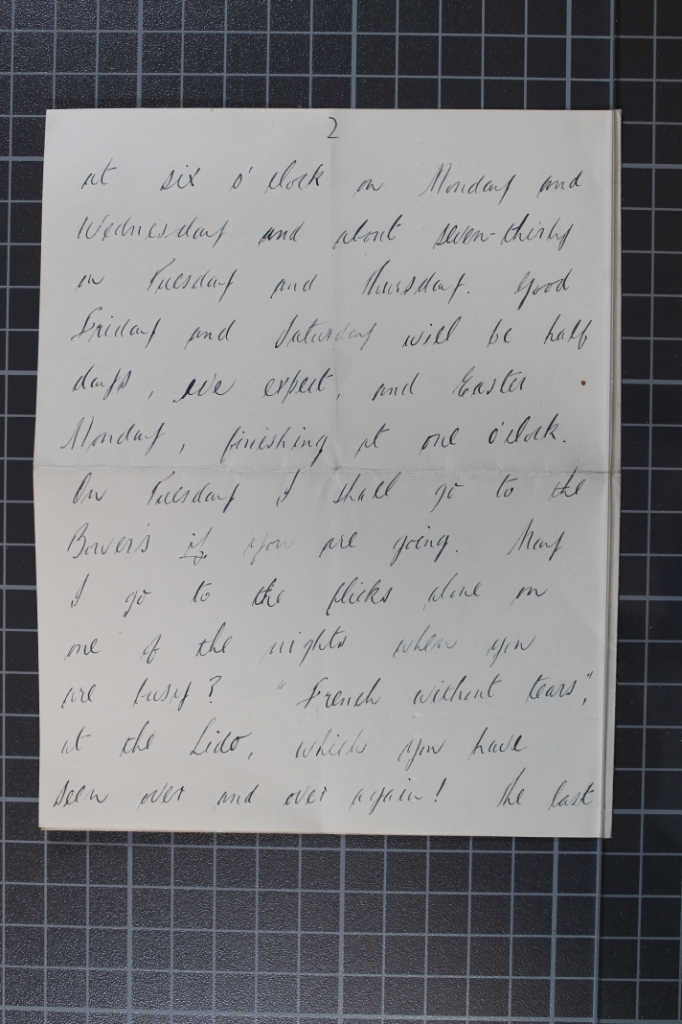 2
at six o'clock on Monday and
Wednesday and about seven-thirty
on Tuesday and Thursday. Good
Friday and Saturday will be half
days, we expect, and Easter
Monday, finishing at one o'clock.
On Tuesday I shall go to the
Bower's if you are going. May
I go to the flicks alone on
one of the nights when you
are busy? "French without tears",
at the Lido, which you have
seen over and over again! The last